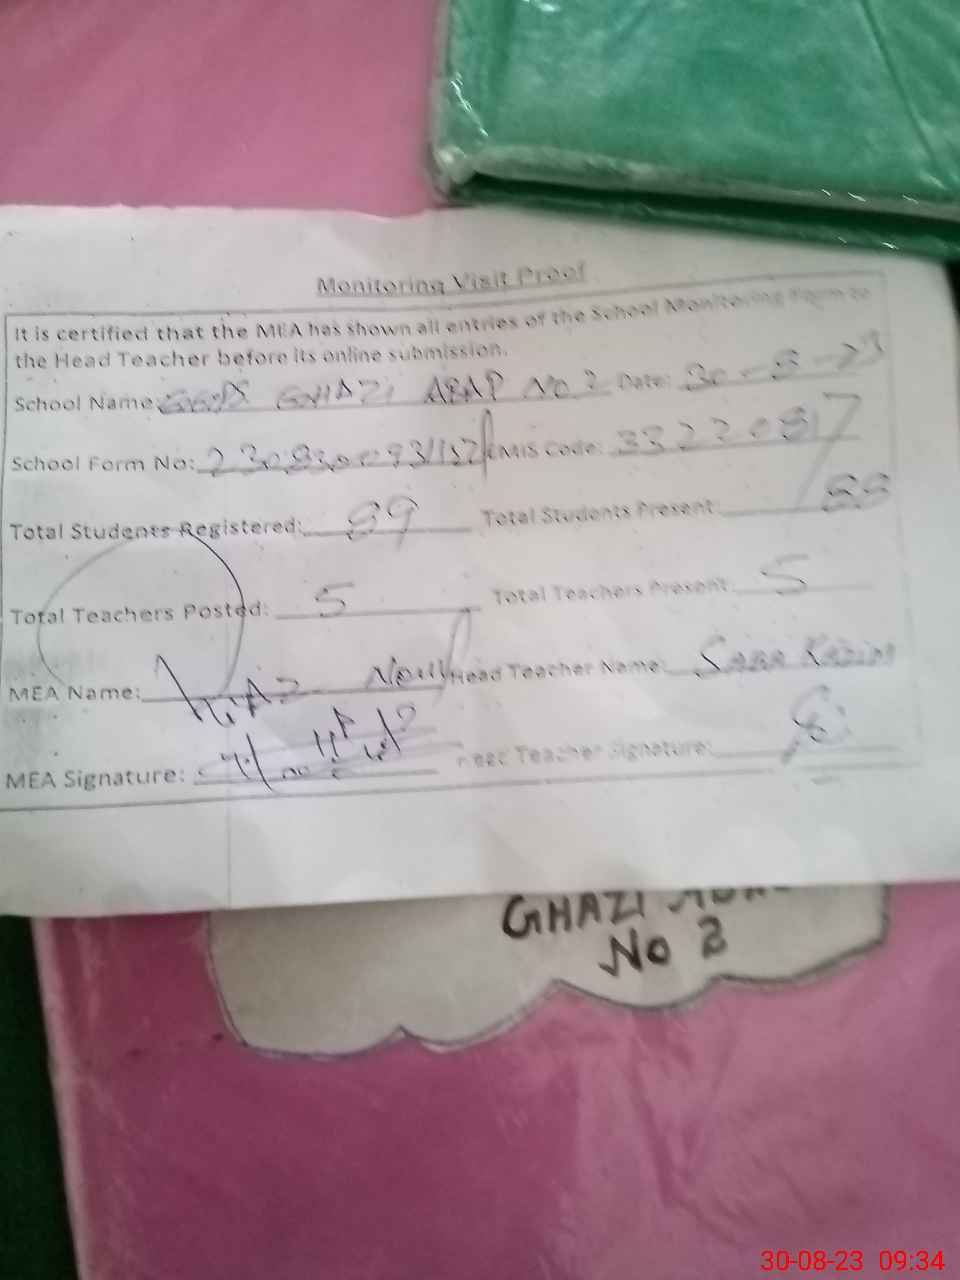 Monitoring Visit Proof
It is certified that the MEA has shown all entries of the School Monitoring Form to
the Head Teacher before its online submission.
School Name: GGPS GHAZI ABAD No. 2 Date: 30-8-23
School Form No: EMIS Code: 33220817
Total Students Registered: 89 Total Students Present: 88
Total Teachers Posted: 5 Total Teachers Present: 5
MEA Name: Head Teacher Name: Saba Kazim
MEA Signature: Head Teacher Signature:
GHAZI
No 2
30-08-23 09:34